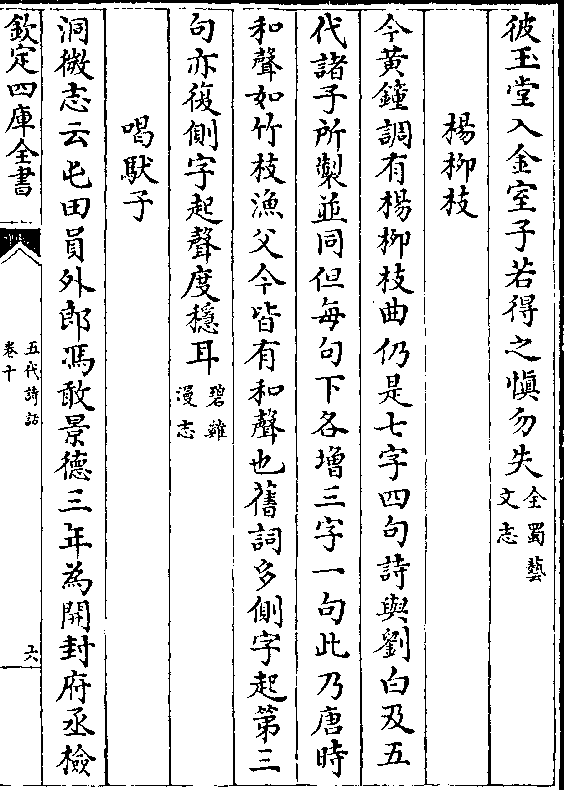 彼玉堂入金室子若得之慎勿失全蜀藝
文志
楊柳枝
今黃鐘調有楊柳枝曲仍是七字四句詩與劉白及五
代諸子所製並同但每句下各增三字一句此乃唐時
和聲如竹枝漁父今皆有和聲也舊詞多側字起第三
句亦復側字起聲度穩耳碧雞
漫志
唱馱子
洞微志云屯田員外郎馮敢景德三年為開封府丞檢
欽定四庫全書
五代詩話
卷十
六